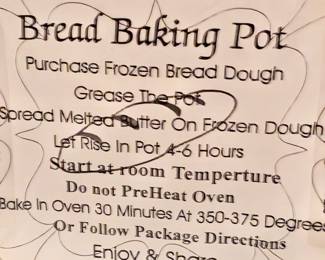 Bread Baking Pot
Purchase Frozen Bread Dough
Grease The Pot
Spread Melted Butter On Frozen Dough
Let Rise In Pot 4-6 Hours
Start at room Temperture
Do not PreHeat Oven
Bake In Oven 30 Minutes At 350-375 Degrees
Or Follow Package Directions
Enjoy & Share